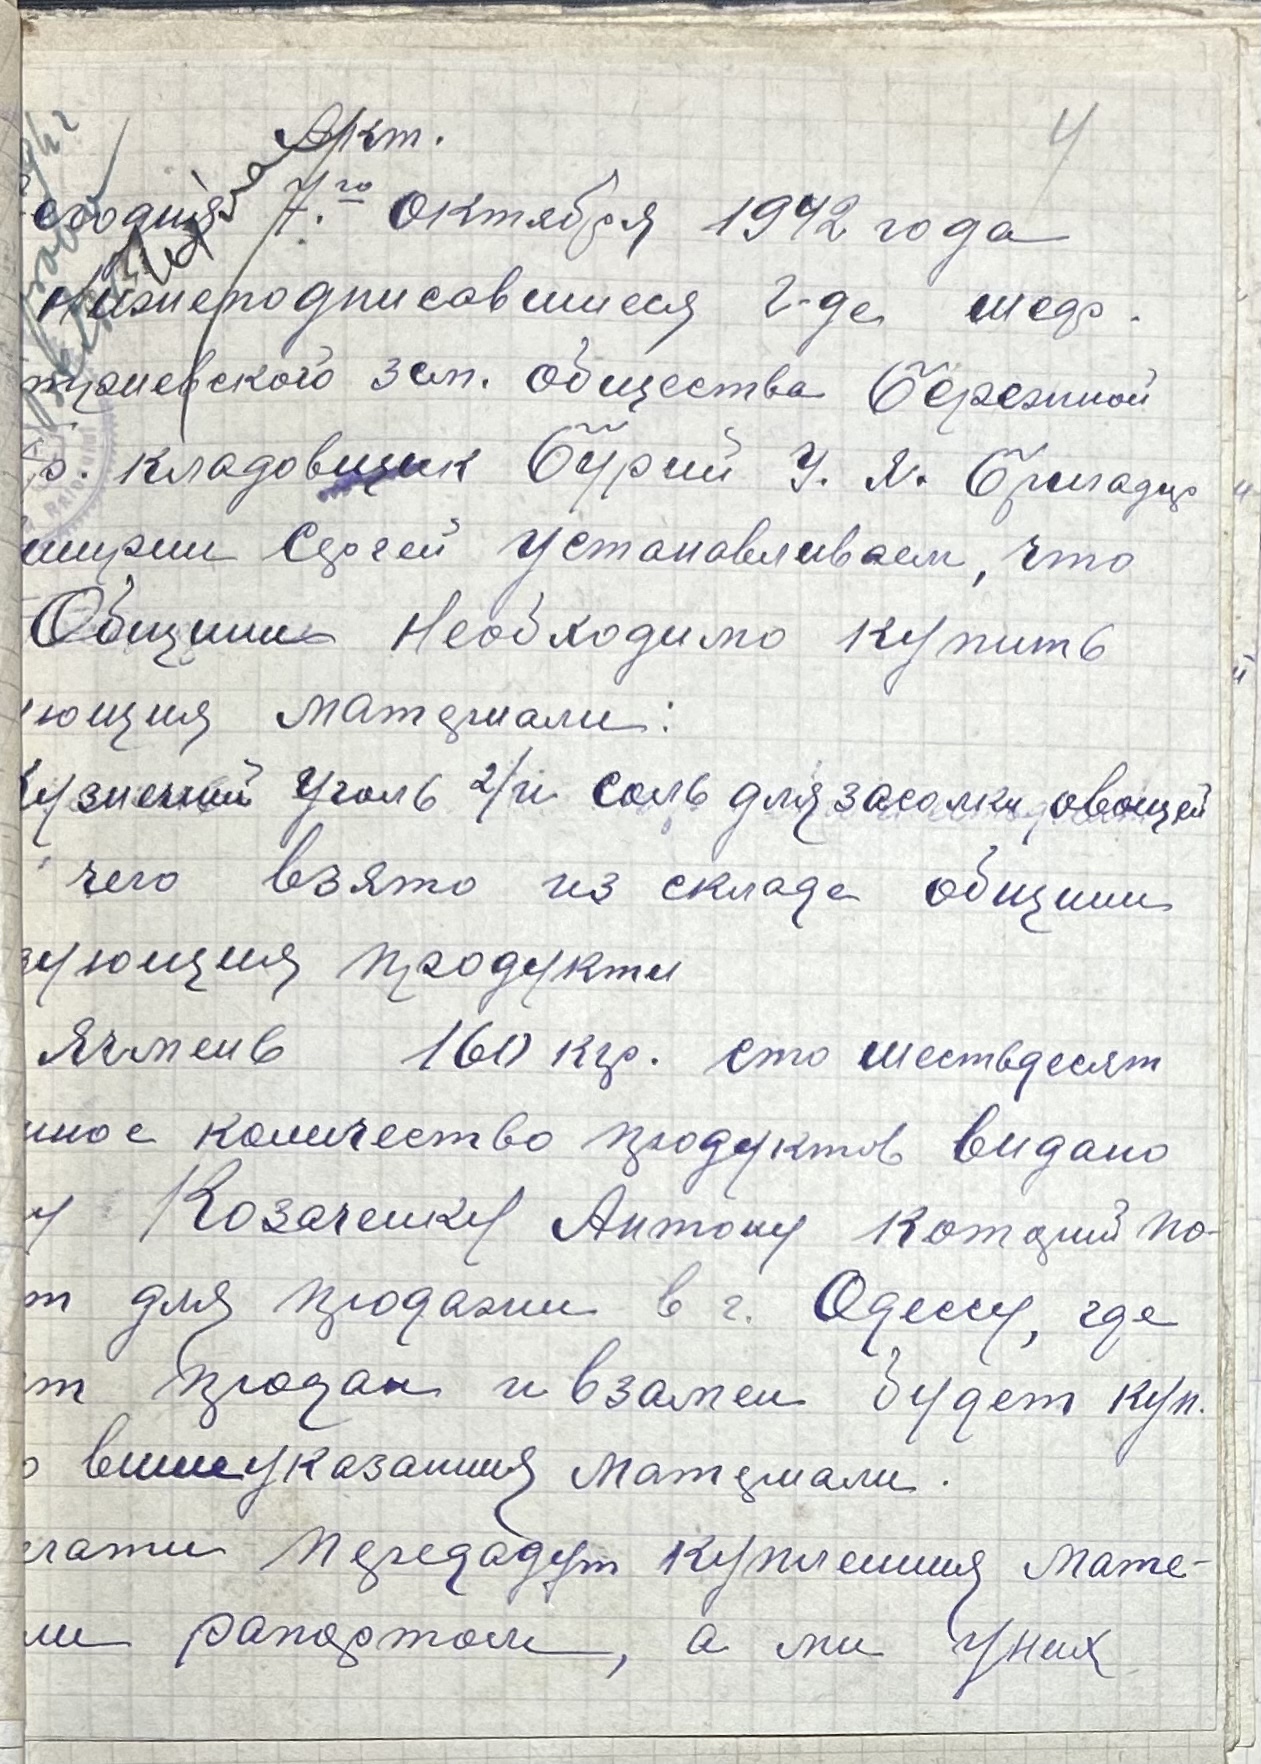 4
Акт.
егодня 7.го октября 1942 года
Нижеподписавшиеся г-де шеф.
зем. общества Бережной
р. кладовщик Бурий У. Я. Бригадир
Сергей установливаем, что
Общини необходимо купить
ющия материали:
Кузнечний уголь 2/и соль для засолки овощей
чего взято из складе общини
ующия продукти
Ячмень 160 кгр. сто шестьдесят
нное количество продуктов видано
у Козаченку Антону которий по-
т для продажи в г. Одессу, где
т продан и взамен будет куп.
о вишеуказанния материали.
передадут купленния мате-
ли рапортом, а ми у них